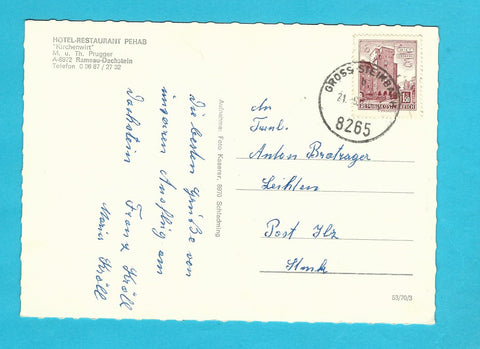 HOTEL-RESTAURANT PEHAB
"Kirchenwirt"
M. u. Th. Prugger
A-8972 Ramsau-Dachstein
Telefon 0 36 87 / 27 32
Die besten Grüße von
unseren Ausflug am
Dachstein Franz Kröll
Maria Kröll
Aufnahme: Foto Kaserer, 8970 Schladming
GROSS STEINBACH
21.
8265
REPUBLIK ÖSTERREICH
An
Faml.
Anton Brotrager
Leithen
Post Ilz
Stmk
53/70/3